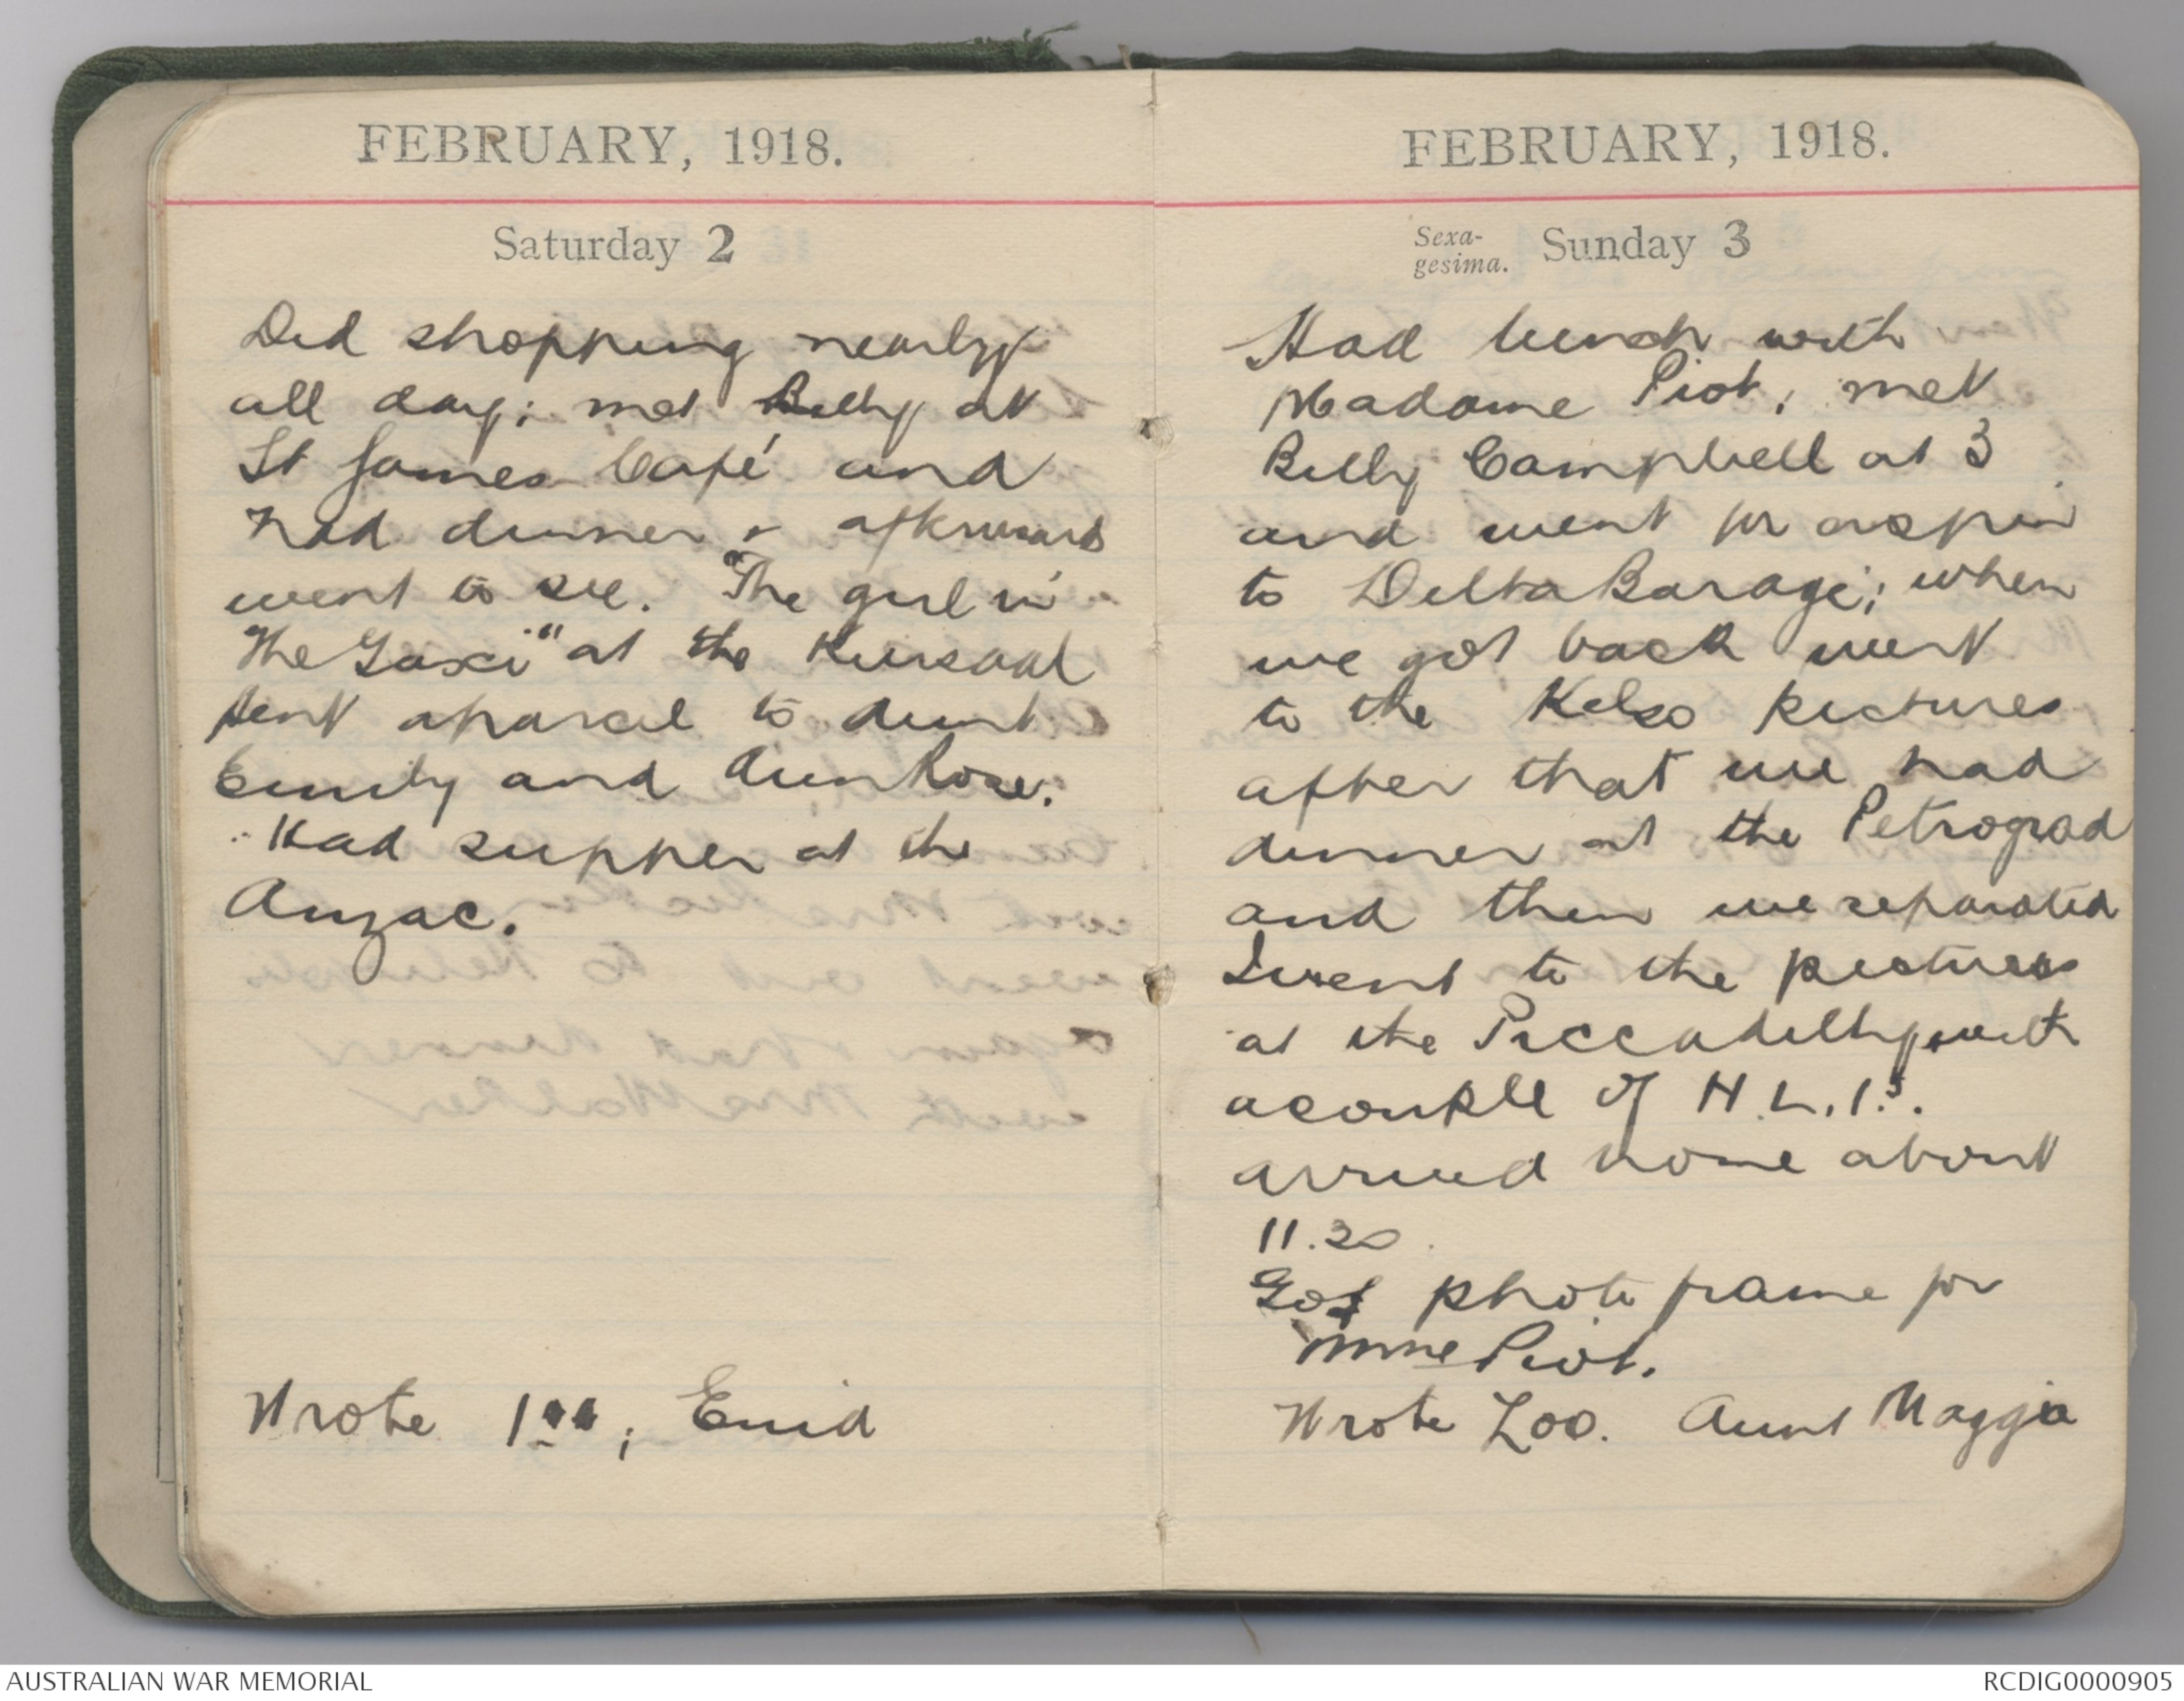 FEBRUARY, 1918.
Saturday 2
Did shopping nearly
all day; met Billy at
St James Café and
had dinner & afterwards
went to see. "The girl in
the Taxi" at the Kursaal
sent a parcel to Aunt
Emily and Aun Rose.
Had supper at the
Anzac.
Wrote ; Enid
FEBRUARY, 1918.
Sexa-
gesima. Sunday 3
Had lunch with
Madame Piot; met
Billy Campbell at 3
and went for a spin
to Delta Barage; when
we got back went
to the Kelso pictures
after that we had
dinner at the Petrograd
and then we separated
I went to the pictures
at the Piccadilly with
a couple of H.L.I.s.
arrived home about
11.20.
Got photo frame for
Mme Piot.
Wrote Loo. Aunt Maggie
AUSTRALIAN WAR MEMORIAL
RCDIG0000905